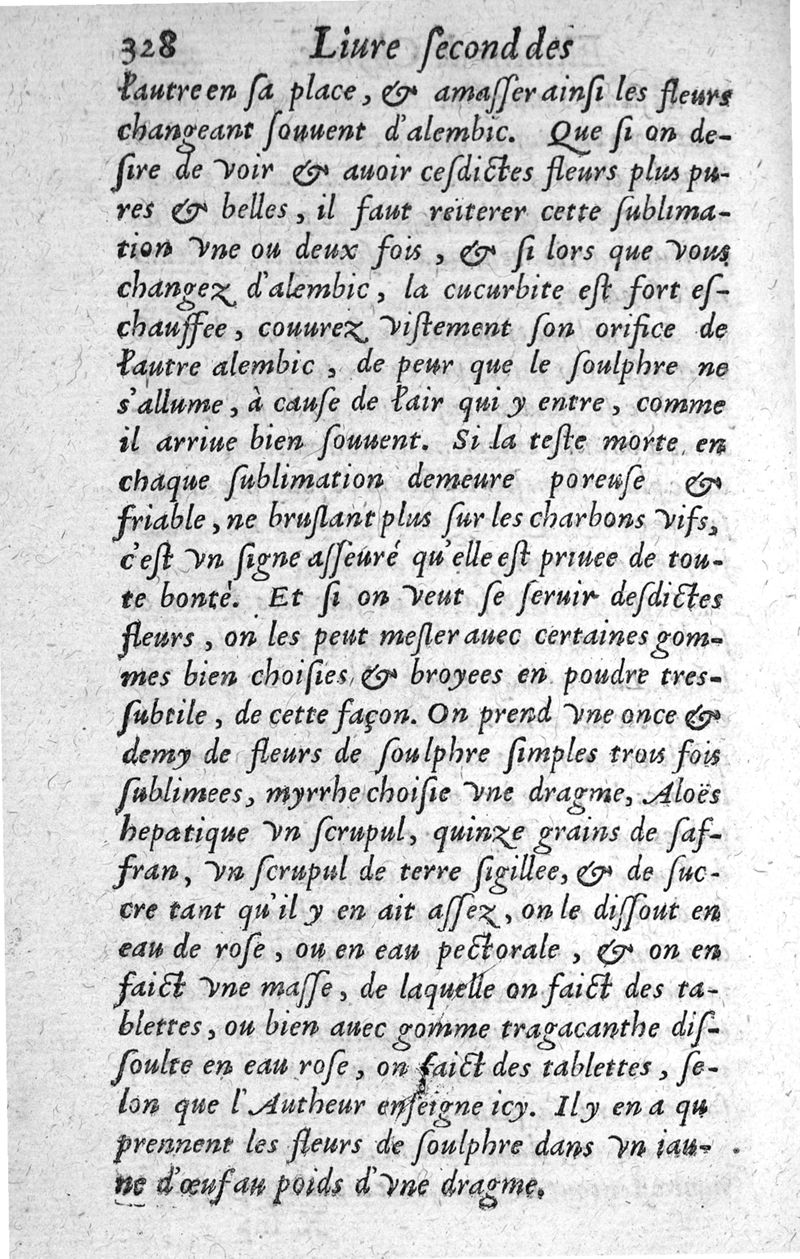 328 Liure ſecond des
l'autre en ſa place, & amaſſer ainſi les fleurs
changeant ſouuent d'alembic. Que ſi on de-
ſire de voir & auoir ceſdictes fleurs plus pu-
res & belles, il faut reiterer cette ſublima-
tion vne ou deux fois, & ſi lors que vous
changez d'alembic, la cucurbite eſt fort eſ-
chauffee, couurez viſtement ſon orifice de
l'autre alembic, de peur que le ſoulphre ne
s'allume, à cauſe de l'air qui y entre, comme
il arriue bien ſouuent. Si la teſte morte en
chaque ſublimation demeure poreuſe &
friable, ne bruſlant plus ſur les charbons vifs,
c'eſt vn ſigne aſſeuré qu'elle eſt priuee de tou-
te bonté. Et ſi on veut ſe ſeruir deſdictes
fleurs, on les peut meſler auec certaines gom-
mes bien choiſies, & broyees en poudre tres-
ſubtile, de cette façon. On prend vne once &
demy de fleurs de ſoulphre ſimples trois fois
ſublimees, myrrhe choiſie vne dragme, Aloës
hepatique vn ſcrupul, quinze grains de ſaf-
fran, vn ſcrupul de terre ſigillee, & de ſuc-
cre tant qu'il y en ait aſſez, on le diſſout en
eau de roſe, ou en eau pectorale, & on en
faict vne maſſe, de laquelle on faict des ta-
blettes, ou bien auec gomme tragacanthe diſ-
ſoulte en eau roſe, on faict des tablettes, ſe-
lon que l'Autheur enſeigne icy. Il y en a qu
prennent les fleurs de ſoulphre dans vn iau-
ne d'œuf au poids d'vne dragme.